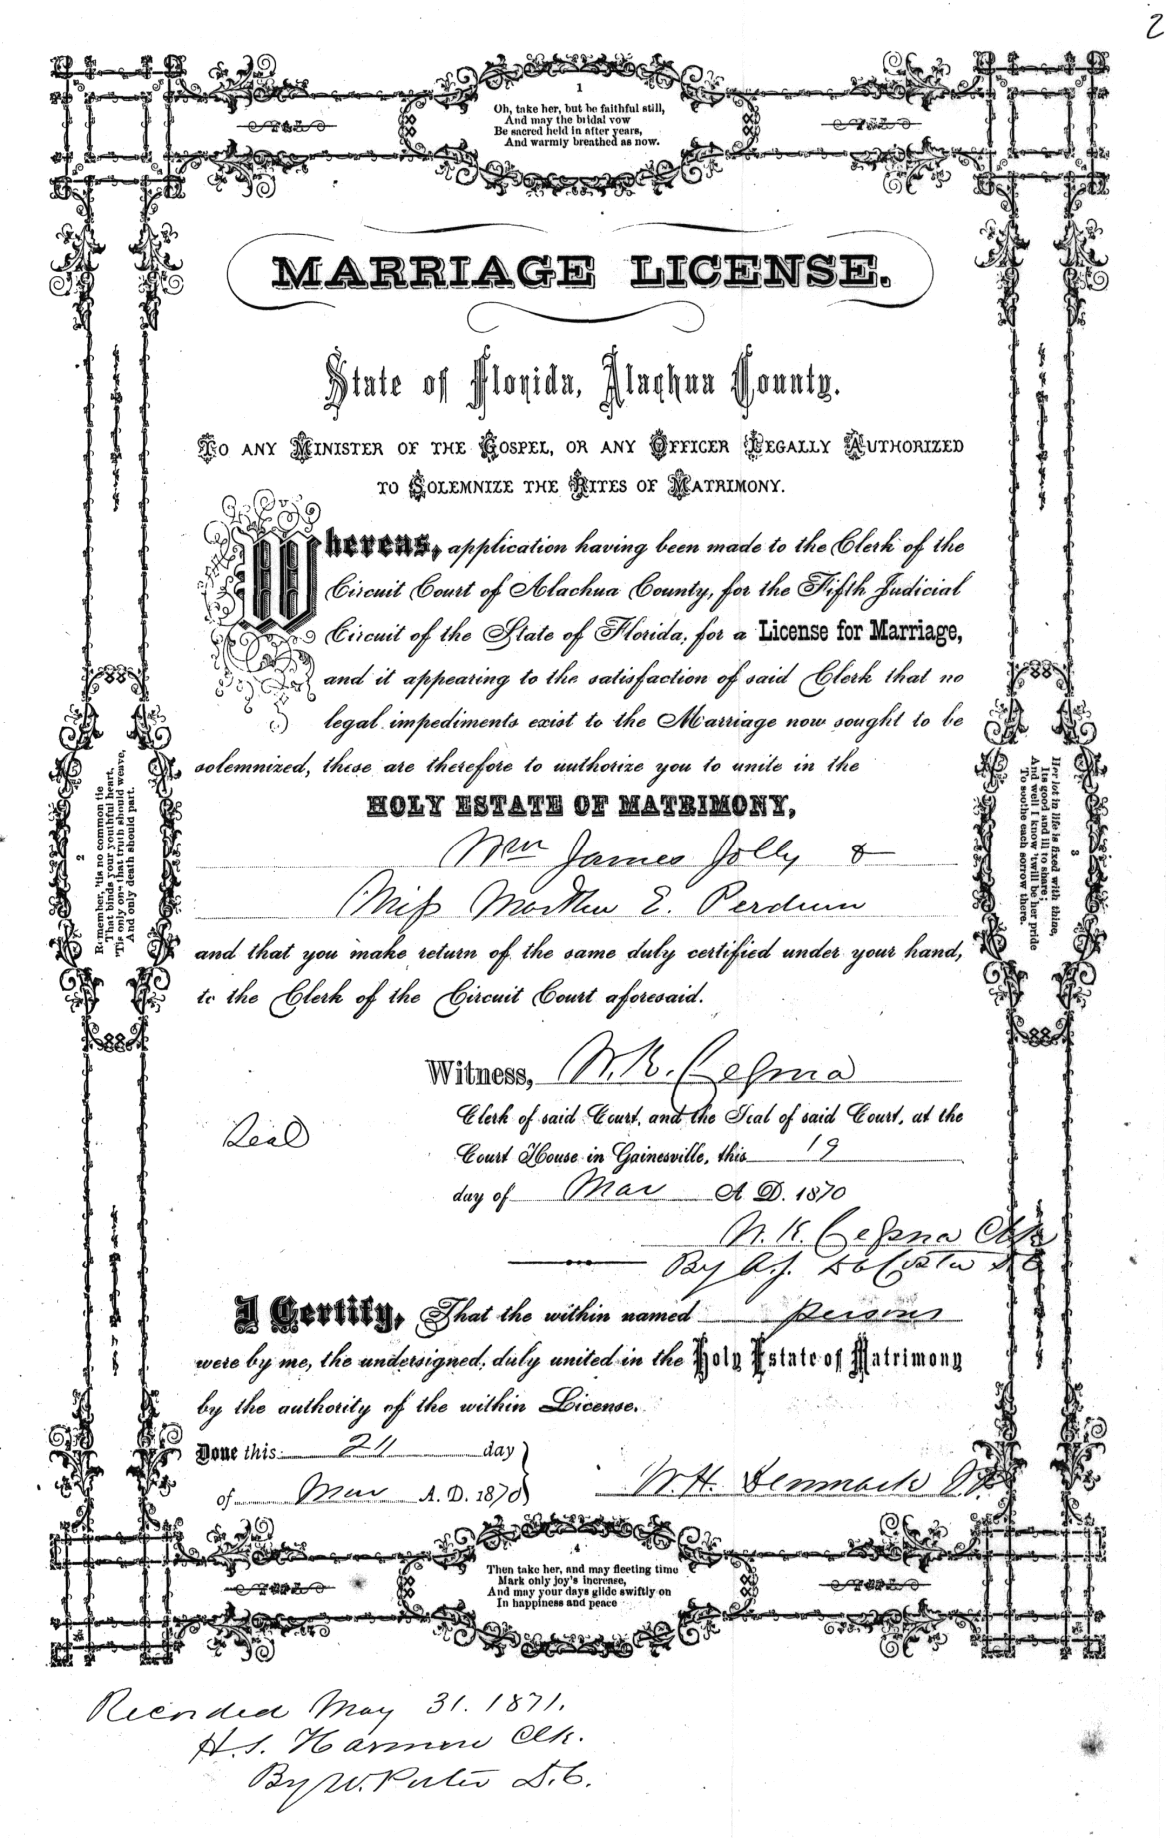 2
1
Oh, take her, but be faithful still,
And may the bridal vow
Be sacred held in after years,
And warmly breathed as now.
MARRIAGE LICENSE.
State of Florida, Alachua County.
TO ANY MINISTER OF THE GOSPEL, OR ANY OFFICER LEGALLY AUTHORIZED
TO SOLEMNIZE THE RITES OF MATRIMONY.
Whereas, application having been made to the Clerk of the
Circuit Court of Alachua County, for the Fifth Judicial
Circuit of the State of Florida, for a License for Marriage,
and it appearing to the satisfaction of said Clerk that no
legal impediments exist to the Marriage now sought to be
solemnized, these are therefore to authorize you to unite in the
HOLY ESTATE OF MATRIMONY,
Wm James Jolly &
Miss E.
and that you make return of the same duly certified under your hand,
to the Clerk of the Circuit Court aforesaid.
Witness, W. K. Cessna
Clerk of said Court, and the Seal of said Court, at the
Seal
Court House in Gainesville, this 19
day of Mar A. D. 1870
W. K. Cessna Clk
By A. J. D. C.
I Certify, That the within named persons
were by me, the undersigned, duly united in the Holy Estate of Matrimony
by the authority of the within License.
Done this 211 day
of Mar A. D. 1870
W. H. Denmark J. P.
2
Remember, 'tis no common tie
That binds your youthful heart,
'Tis one only that truth should weave,
And only death should part.
3
Her lot in life is fixed with thine,
Its good and ill to share;
And well I know 'twill be her pride
To soothe each sorrow there.
4
Then take her, and may fleeting time
Mark only joy's increase,
And may your days glide swiftly on
In happiness and peace
Recorded May 31. 1871.
H. S. Harmon Clk.
By W. Porter D. C.